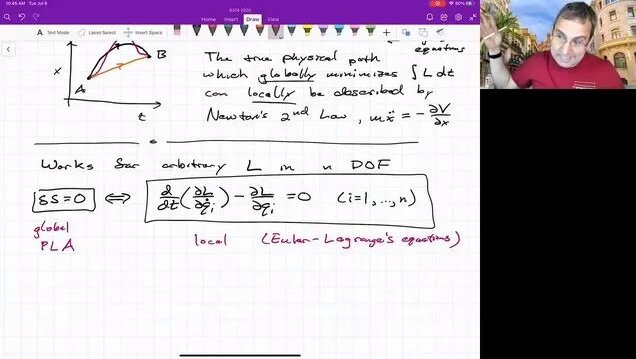 10:45 AM Tue Jul 6
80%
Home Insert Draw View
Text Mode Lasso Select Insert Space
equations
x
A
B
t
The true physical path
which globally minimizes ∫L dt
can locally be described by
Newton's 2nd Law, mẍ = -∂V/∂x
Works for arbitrary L in n DOF
δS=0 ⇔ d/dt(∂L/∂q̇i) - ∂L/∂qi = 0 (i=1,...,n)
global
PLA
local (Euler-Lagrange's equations)